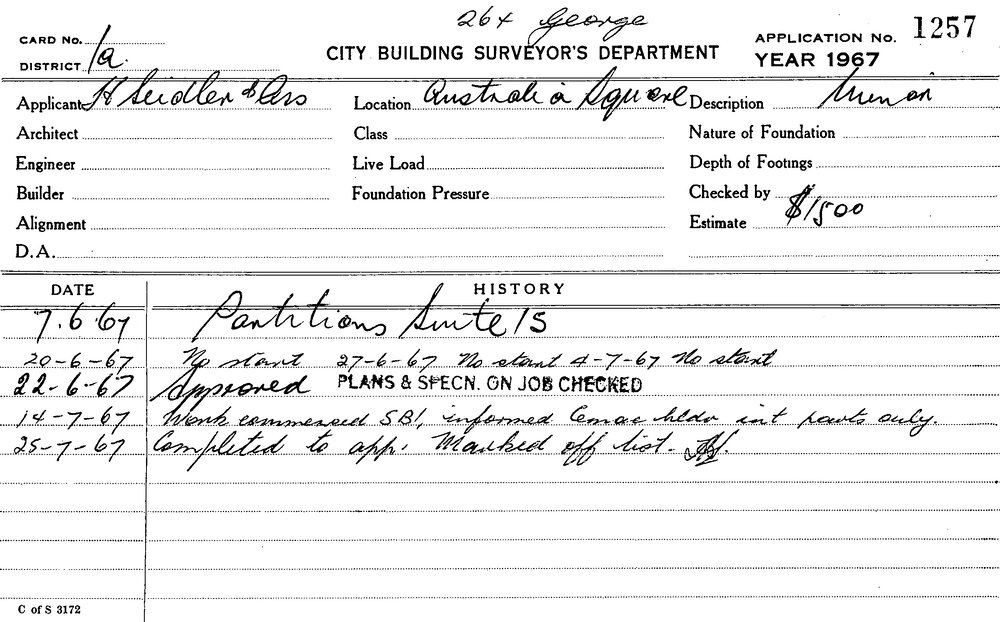 264 George
CARD No.
CITY BUILDING SURVEYOR'S DEPARTMENT
APPLICATION No. 1257
DISTRICT 1a.
YEAR 1967
Applicant H Seidler & Ass Location Australia Square Description Minor
Architect Class Nature of Foundation
Engineer Live Load Depth of Footings
Builder Foundation Pressure Checked by
Alignment Estimate $1500
D.A.
DATE HISTORY
7.6.67 Partitions Suite 15
20-6-67 No start 27-6-67 No start 4-7-67 No start
22-6-67 Approved PLANS & SPECN. ON JOB CHECKED
14-7-67 Work commenced informed int parts only.
25-7-67 Completed to app. Marked off list.
C of S 3172